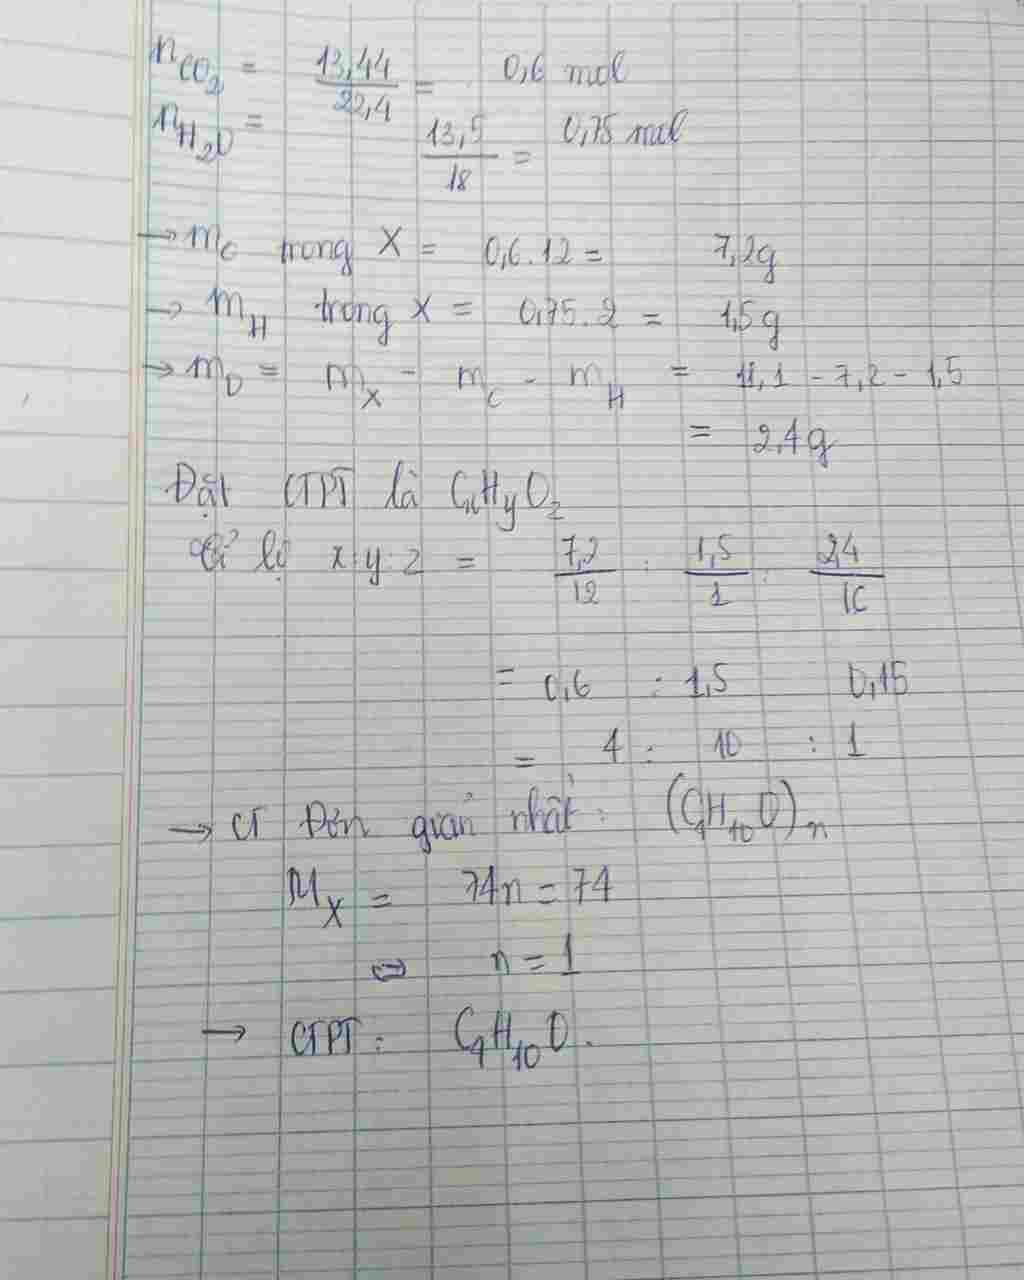 nCO2 = 13,44/22,4 = 0,6 mol
nH2O = 13,5/18 = 0,75 mol
→ mC trong X = 0,6.12 = 7,2g
→ mH trong X = 0,75.2 = 1,5g
→ mO = mX - mC - mH = 11,1 - 7,2 - 1,5
= 2,4g
Đặt CTPT là CxHyOz
Tỉ lệ x:y:z = 7,2/12 : 1,5/1 : 2,4/16
= 0,6 : 1,5 0,15
= 4 : 10 : 1
→ CT Đơn giản nhất : (C4H10O)n
MX = 74n = 74
⇔ n = 1
→ CTPT : C4H10O.